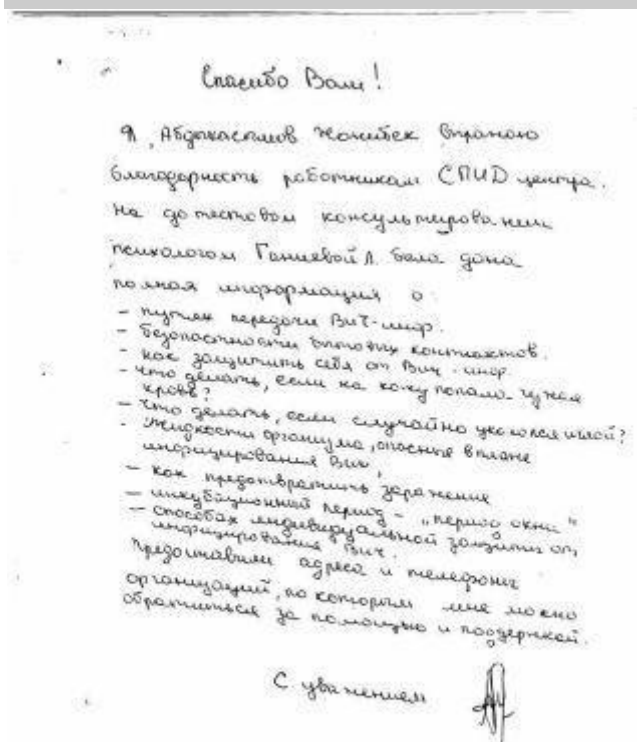 Спасибо Вам!
Я, Абдыкасымов Жонибек выражаю
благодарность работникам СПИД центра.
На дотестовом консультировании
психологом Ганиевой Л. была дана
полная информация о:
- путях передачи ВИЧ-инф.
- безопасности бытовых контактов.
- как защитить себя от ВИЧ-инф.
- что делать, если на кожу попала чужая
кровь?
- что делать, если случайно укололся иглой?
- жидкости организма, опасные в плане
инфицирования ВИЧ,
- как предотвратить заражение
- инкубационный период - „период окна"
- способах индивидуальной защиты от
инфицирования ВИЧ.
Предоставили адреса и телефоны
организаций, по которым мне можно
обратиться за помощью и поддержкой.
С уважением